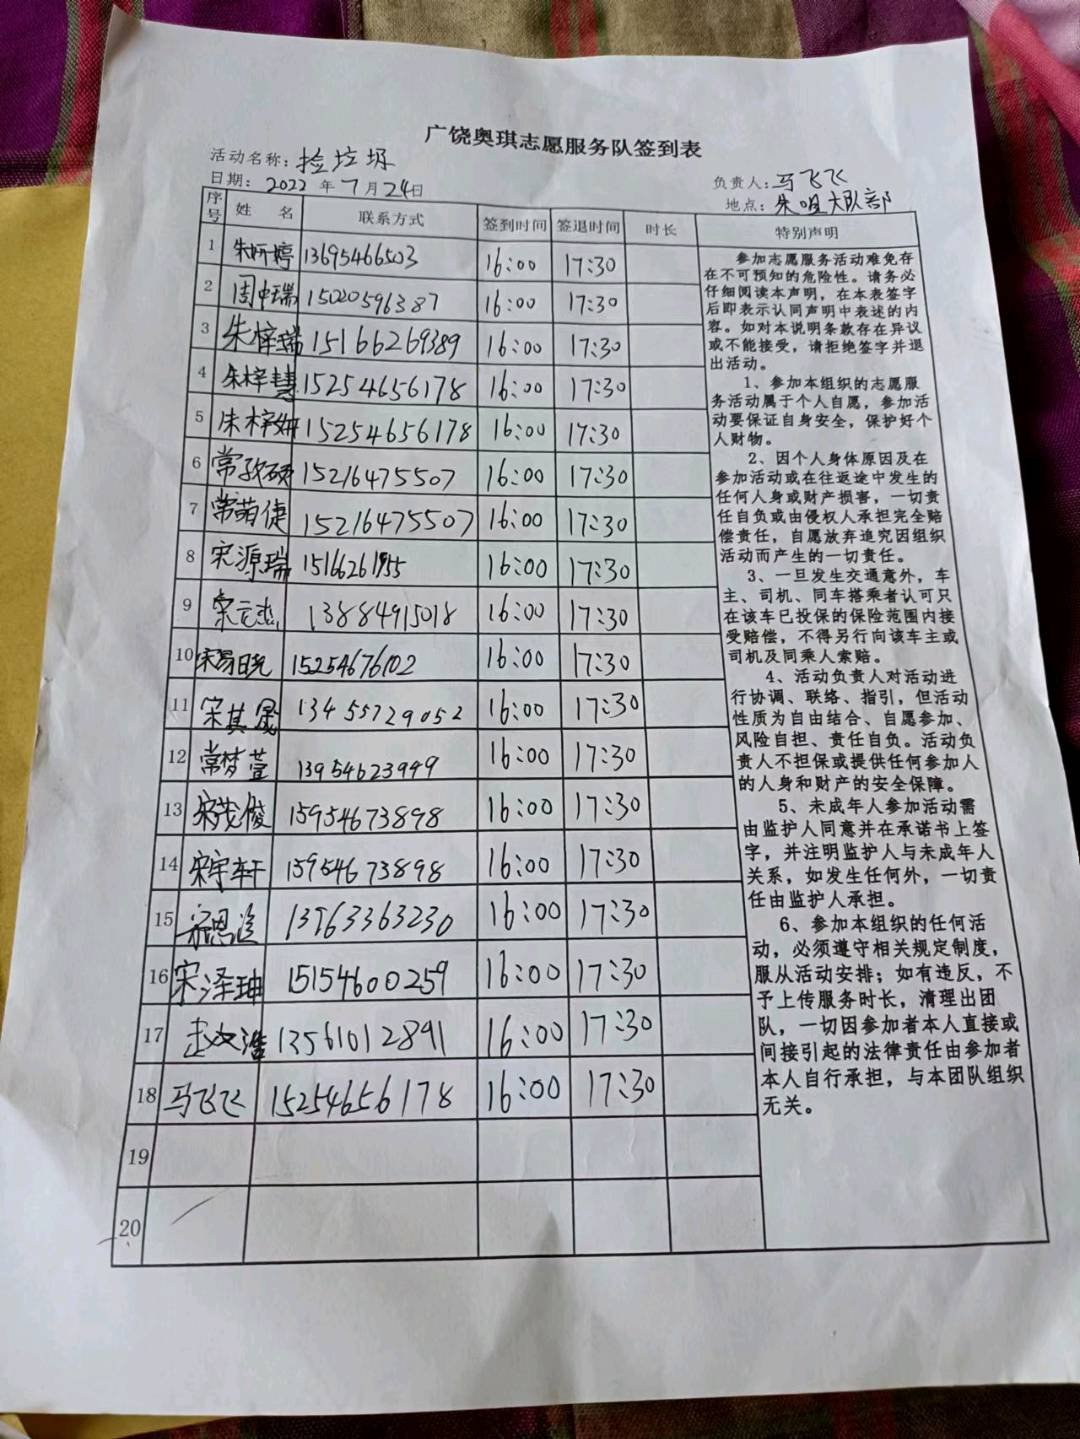 广饶奥琪志愿服务队签到表
活动名称：捡垃圾
日期：2022年7月24日
负责人：马飞飞
地点：朱咀大队部
序号 姓名 联系方式 签到时间 签退时间 时长 特别声明
1 朱昕婷 13695466503 16:00 17:30
2 周中瑞 15020596387 16:00 17:30
3 朱梓瑞 15166269389 16:00 17:30
4 朱梓慧 15254656178 16:00 17:30
5 朱梓妍 15254656178 16:00 17:30
6 常孜硕 15216475507 16:00 17:30
7 常萌倢 15216475507 16:00 17:30
8 宋源瑞 15166261955 16:00 17:30
9 宋元杰 13884915018 16:00 17:30
10 宋易晓 15254676102 16:00 17:30
11 宋其晟 13455729052 16:00 17:30
12 常梦萱 13954623949 16:00 17:30
13 宋茂俊 15954673898 16:00 17:30
14 宋宇轩 15954673898 16:00 17:30
15 宋恩 13963363230 16:00 17:30
16 宋泽珅 15154600259 16:00 17:30
17 赵文浩 13561012891 16:00 17:30
18 马飞飞 15254656178 16:00 17:30
19
20
参加志愿服务活动难免存
在不可预知的危险性。请务必
仔细阅读本声明，在本表签字
后即表示认同声明中表述的内
容。如对本说明条款存在异议
或不能接受，请拒绝签字并退
出活动。
1、参加本组织的志愿服
务活动属于个人自愿，参加活
动要保证自身安全，保护好个
人财物。
2、因个人身体原因及在
参加活动或在往返途中发生的
任何人身或财产损害，一切责
任自负或由侵权人承担完全赔
偿责任，自愿放弃追究因组织
活动而产生的一切责任。
3、一旦发生交通意外，车
主、司机、同车搭乘者认可只
在该车已投保的保险范围内接
受赔偿，不得另行向该车主或
司机及同乘人索赔。
4、活动负责人对活动进
行协调、联络、指引，但活动
性质为自由结合、自愿参加、
风险自担、责任自负。活动负
责人不担保或提供任何参加人
的人身和财产的安全保障。
5、未成年人参加活动需
由监护人同意并在承诺书上签
字，并注明监护人与未成年人
关系，如发生任何外，一切责
任由监护人承担。
6、参加本组织的任何活
动，必须遵守相关规定制度，
服从活动安排；如有违反，不
予上传服务时长，清理出团
队，一切因参加者本人直接或
间接引起的法律责任由参加者
本人自行承担，与本团队组织
无关。